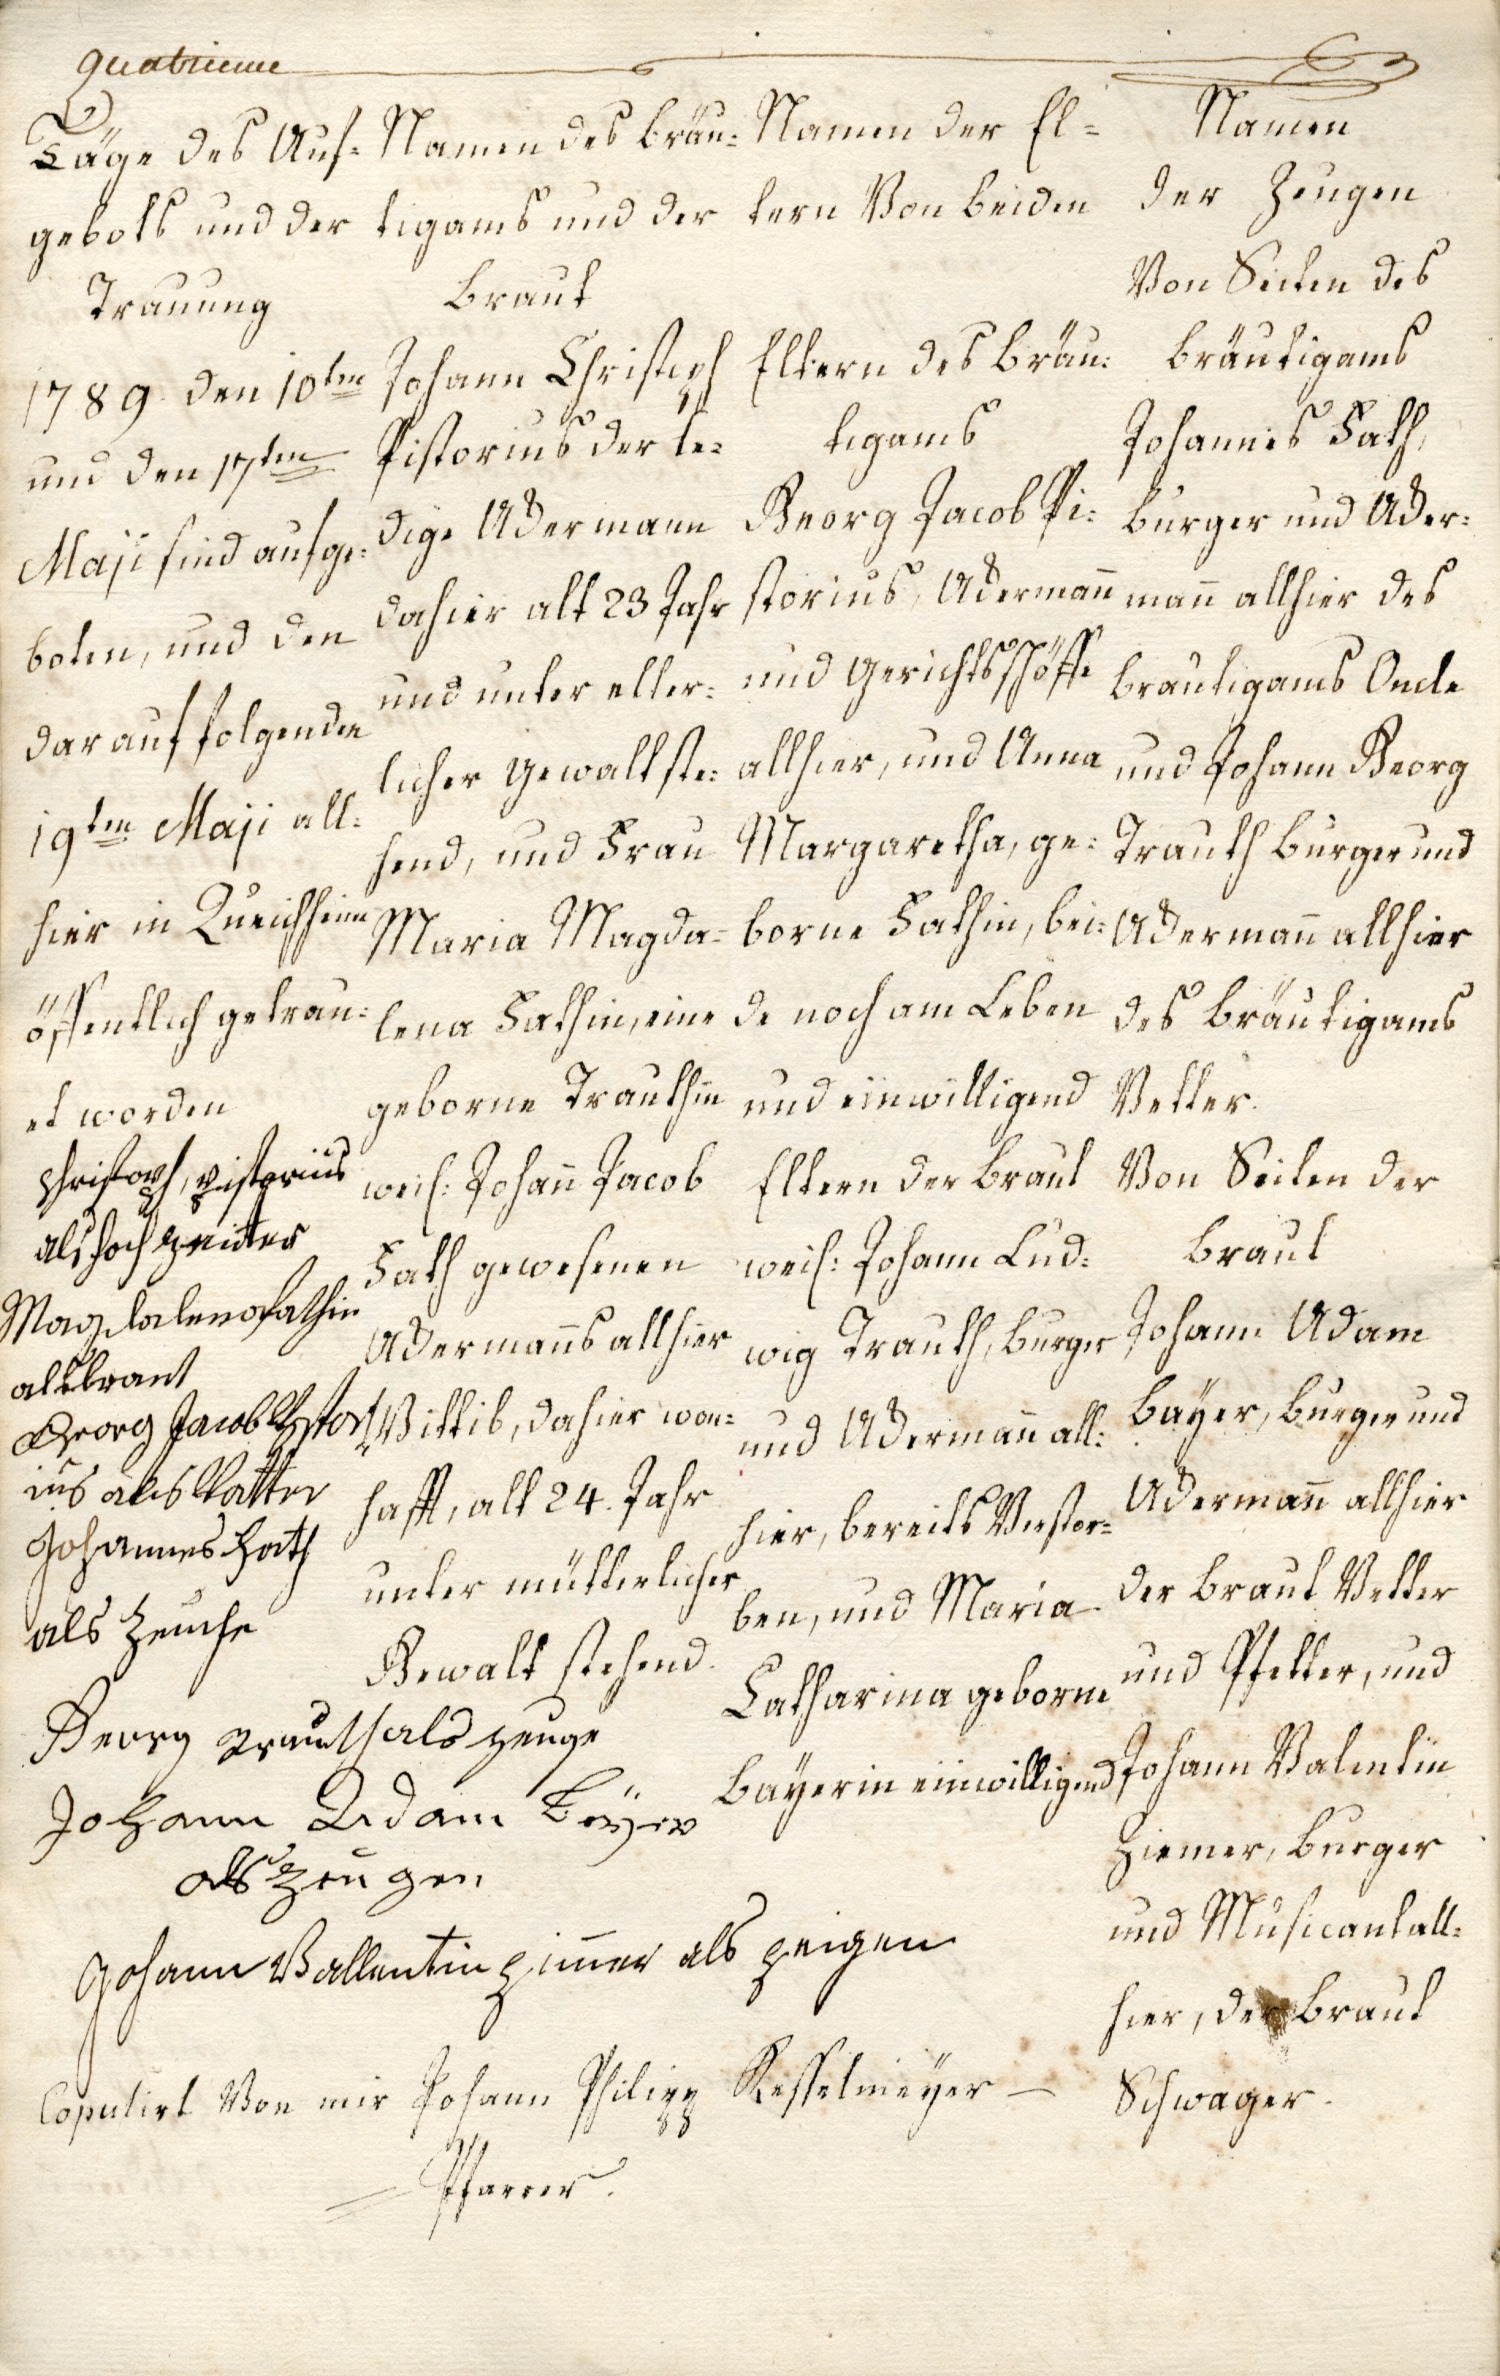 quatrieme
Täge des Auf-
gebots und der
Trauung
1789 den 10ten
und den 17ten
Maji sind aufge-
boten, und den
darauf folgenden
19ten Maji all-
hier in Queichheim
öffentlich getrau-
et worden
Christoph, pistorius
als hoch zeiter
Magdalena fathin
als braut
Georg Jacob Pistor
ius als Vatter
Johannes Fath
als Zeuche
Georg Trauth als zeuge
Johann Adam Beÿer
als Zeugen
Johann Vallentin Zim̄er als zeigen
Namen des Bräu-
tigams und der
Braut
Johann Christoph
Pistorius der le-
dige Ackermann
dahier alt 23 Jahr
und unter elter-
licher gewalt ste-
hend, und Frau
Maria Magda-
lena Fathin, eine
geborne Trauthin
weil: Johan̄ Jacob
Fath gewesenen
Ackerman̄s allhier
Wittib, dahier won-
hafft, alt 24. Jahr
unter mütterlicher
Gewalt stehend.
Namen der El-
tern Von beiden
Eltern des Bräu-
tigams
Georg Jacob Pi-
storius, Ackerman̄
und Gerichtsschöffe
allhier, und Anna
Margaretha, ge-
borne Fathin, bei-
de noch am Leben
und einwilligend
Eltern der Braut
weil: Johann Lud-
wig Trauth, Burger
und Ackerman̄ all-
hier, bereits Verstor-
ben, und Maria
Catharina geborne
Bayerin einwilligend
Namen
der Zeugen
Von Seiten des
Bräutigams
Johannes Fath,
Burger und Acker-
man̄ allhier des
Bräutigams Oncle
und Johann Georg
Trauth Burger und
Ackerman̄ allhier
des Bräutigams
Vetter.
Von Seiten der
Braut
Johann Adam
Bayer, Burger und
Ackerman̄ allhier
der Braut Vetter
und Pfetter, und
Johann Valentin
Ziemer, Burger
und Musicant all-
hier, der Braut
Schwager.
Copulirt Von mir Johann Philipp Kesselmeyer —
Pfarrer.